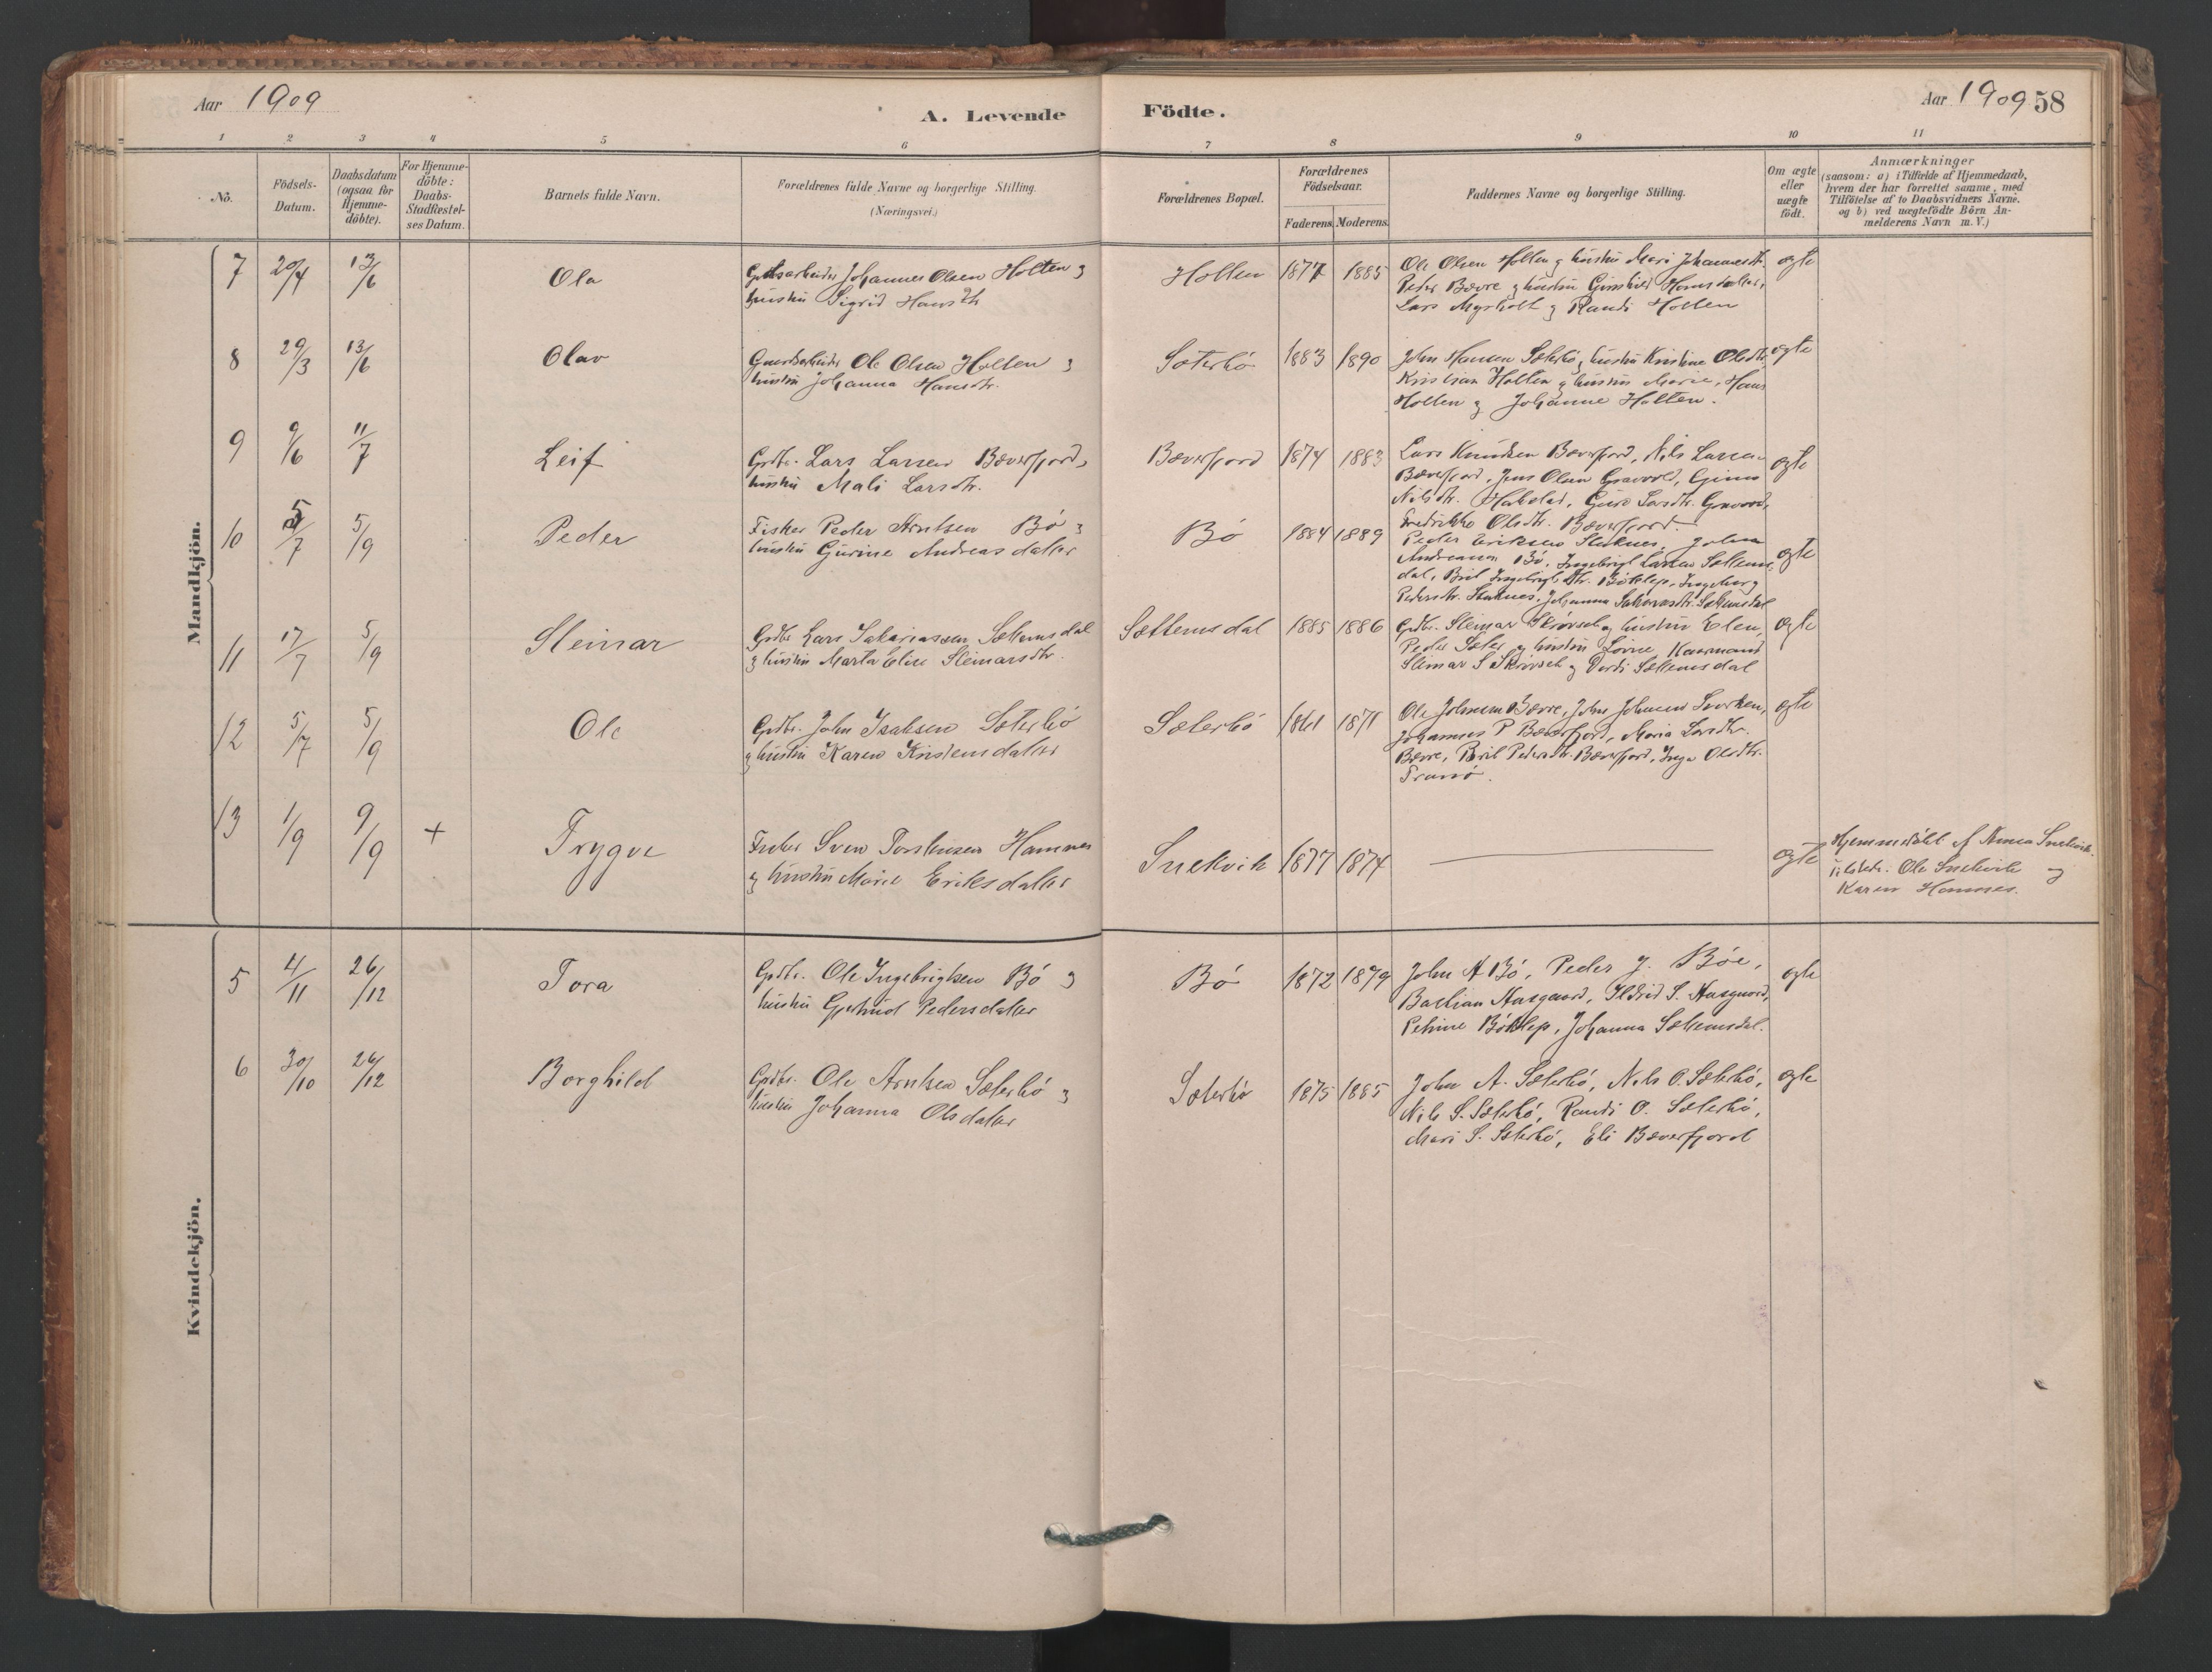 Aar 1909
A. Levende Födte.
Aar 1909 58
1 2 3 4 5 6 7 8 9 10 11
No.
Födsels-Datum.
Daabsdatum (ogsaa for Hjemme-döbte).
For Hjemme-döbte: Daabs-Stadfæstel-ses Datum.
Barnets fulde Navn.
Forældrenes fulde Navne og borgerlige Stilling.
(Næringsvei.)
Forældrenes Bopæl.
Forældrenes Födselsaar.
Faderens. Moderens.
Faddernes Navne og borgerlige Stilling.
Om ægte eller uægte födt.
Anmærkninger
(saasom: a) i Tilfælde af Hjemmedaab,
hvem der har forrettet samme, med
Tilföielse af to Daabsvidners Navne.
og b) ved uægtefödte Börn An-
melderens Navn m. V.)
Mandkjön.
7 20/4 13/6 Ola
Johannes Olsen Holten og
hustru Sigrid Hansdtr
Holten 1877 1885
Ole Olsen Holten og hustru Mari Johannesdtr.
Peder Bævre og hustru Gunhild Hansdatter,
Lars Myrholt og Randi Holten
ægte
8 29/3 13/6 Olav
Gaardsarbeider Ole Olsen Holten og
hustru Johanna Hansdtr.
Sæterbö 1883 1890
John Hansen Sæterbö og hustru Kristine Olsdtr,
Kristian Holten og hustru Marie, Hans
Holten og Johanne Holten.
ægte
9 9/6 11/7 Leif
Grdbr. Lars Larsen Bæverfjord,
hustru Mali Larsdtr.
Bæverfjord 1874 1883
Lars Knudsen Bæverfjord, Nils Larsen
Bæverfjord, Jens Olsen Gravvold,
Nilsdtr. Guro Larsdtr.
Fredrikke Olsdtr. Bæverfjord.
ægte
10 5/7 5/9 Peder
Fisker Peder Arntsen Bö og
hustru Gurine Andreasdatter
Bö 1884 1889
Peder Eriksen Stoknes, Johan
Andreassen Bö, Ingebrigt Larsen Settems-
dal, Brit Ingebrigtsdtr. Böklep, Ingeborg
Pedersdtr. Stoknes, Johanna Sakariasdtr. Settemsdal
ægte
11 17/7 5/9 Steinar
Grdbr Lars Sakariassen Settemsdal
og hustru Marta Elise Steinarsdtr.
Settemsdal 1885 1886
Grdbr. Steinar Skrövset og hustru Elen,
Peder Sæter og hustru Lovise,
Steinar S Skrövset og Dordi Settemsdal
ægte
12 5/7 5/9 Ole
Grdbr. John Isaksen Sæterbö
og hustru Karen Kristensdatter
Sæterbö 1861 1871
Ole Johnsen Bævre, John Johnsen
Johannes P Bæverfjord, Maria Larsdtr.
Bævre, Beril Pedersdtr. Bæverfjord, Inga Olsdtr.
Tranö.
ægte
13 1/9 9/9 + Trygve
Sven Torstensen Hamnes
og hustru Marie Eriksdatter
Snekvik 1877 1874
ægte
Hjemmedöbt af Anna Snekvik
Ole Snekvik og
Karen Hamnes.
Kvindekjön.
5 4/11 26/12 Tora
Grdbr. Ole Ingebrigtsen Bö og
hustru Gjertrud Pedersdatter
Bö 1872 1879
John A Bö, Peder J. Böe,
Bastian Aasgaard, Ildrid S. Aasgaard,
Petrine Böklep, Johanna Settemsdal.
ægte
6 30/10 26/12 Borghild
Grdbr. Ole Arntsen Sæterbö og
hustru Johanna Olsdatter
Sæterbö 1875 1885
John A. Sæterbö, Nils O. Sæterbö,
Nils S. Sæterbö, Randi O. Sæterbö,
Mari S. Sæterbö, Eli Bæverfjord
ægte